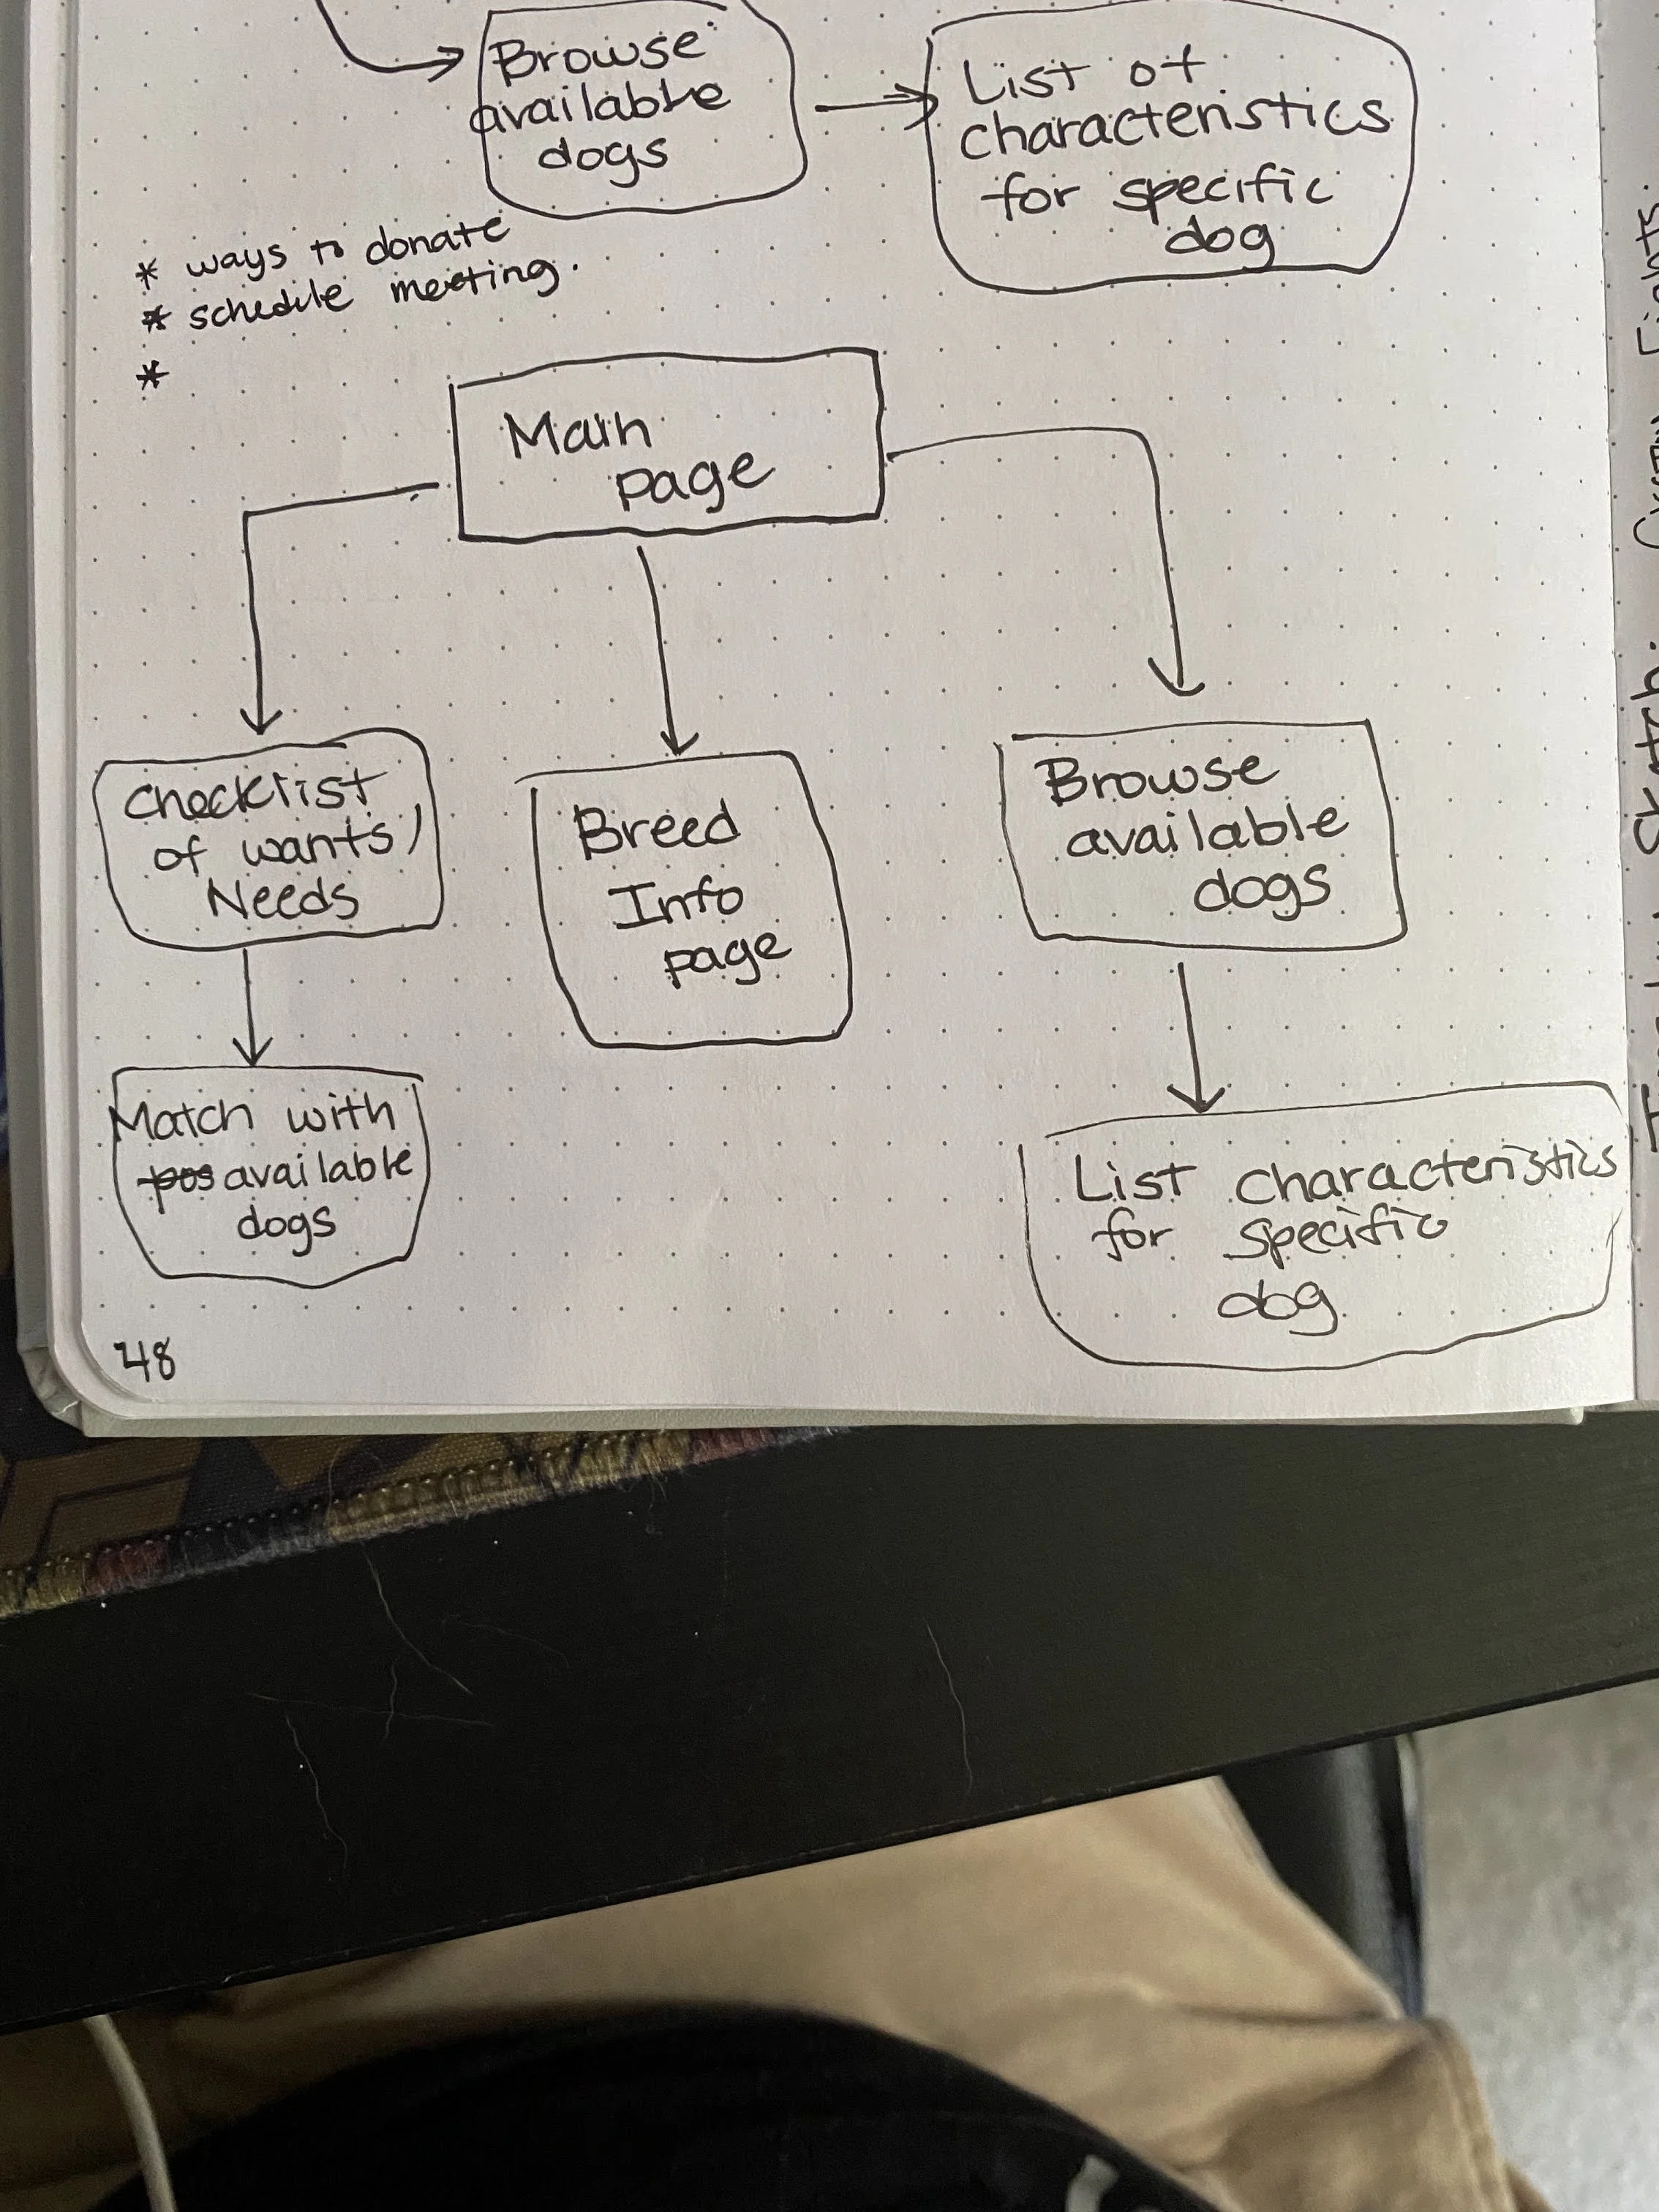 Browse
available
dogs
List of
characteristics
for specific
dog
* ways to donate
* schedule meeting.
*
Main
page
Checklist
of wants/
Needs
Breed
Info
page
Browse
available
dogs
Match with
pos available
dogs
List characteristics
for specific
dog.
48
Sketch: